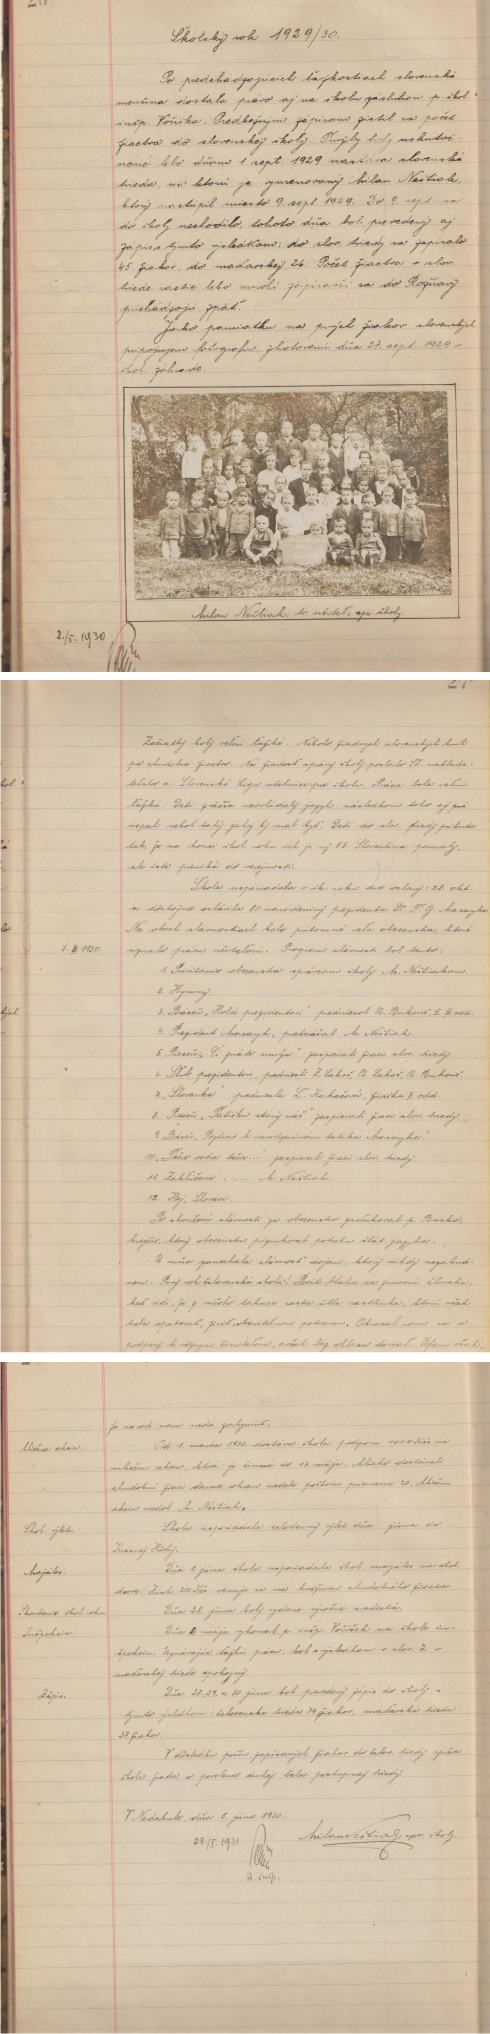 Školský rok 1929/30.
Po predchádzajúcich ťažkostiach slovenská
menšina dostala právo aj na školu zásluhou p. škol.
insp. Vöröša. Predbežným zápisom zistil sa počet
žiactva do slovenskej školy.
nané lebo dňom 1 sept. 1929 nastáva slovenská
trieda, na ktorú je vymenovaný Milan Neštiak,
ktorý nastúpil miesto 9. sept 1929. Do 9. sept. sa
do školy nechodilo, tohoto dňa bol prevedený aj
zápis s týmto výsledkom: do slov. triedy sa zapísalo
45 žiakov, do maďarskej 26. Počet žiactva v slov.
triede rastie lebo mnohí zapísaní sa do Rožňavy
prichádzajú zpäť.
Jako pamiatku na prvých žiakov slovenských
pripojujem fotografiu, zhotovenú dňa 27. sept. 1929 v
škol. záhrade.
Milan Neštiak, učiteľ, spr. školy
2./5. 1930
27
Začiatky boly veľmi ťažké. Nebolo žiadnych slovenských kníh
pre chudobné žiactvo. Na žiadosť správy školy poslalo St. naklada-
teľstvo a Slovenská Liga učebnice pre školu. Práca bola veľmi
ťažká. Deti zväčša neovládaly jazyk, následkom toho aj
úspech nebol taký jaký by mal byť. Detí do slov. triedy pribúda
tak, že na konci škol. roku ich je už 55. Slovenčina pomaly,
ale iste preniká do verejnosti.
Škola usporiadala v šk. roku dve oslavy: 28. okt.
a dôstojne oslávila 80 narodeniny prezidenta Dr. T. G. Masaryka.
Na oboch slávnostiach bolo prítomné veľa obecenstva, ktoré
uznalo prácu učiteľov. Program slávnosti bol tento:
7. III. 1930.
1. Privítanie obecenstva správcom školy M. Neštiakom.
2. Hymny.
3. Báseň „Hold prezidentovi" predniesol
4. Prezident Masaryk, prednášal M. Neštiak.
5. Pieseň „Či znáte zaspievali žiaci slov. triedy.
6. Sľub prezidentovi, predniesli Z. Lakoš, A. Lakoš,
7. „Slovenka" predniesla žiačka II. odd.
8. Pieseň „Tatíčku starý náš" zaspievali žiaci slov. triedy.
9. Báseň „Pozdrav k narodeninám tatíka Masaryka".
10. „Tečie voda tečie..." zaspievali žiaci slov. triedy.
11. Zakľúčenie ..... M. Neštiak.
12. Hej, Slováci.
Po skončení slávnosti za obecenstvo poďakoval p.
ktorý obecenstvu prízvukoval potrebu štát. jazyka.
U mňa zanechala slávnosť dojem, ktorý nikdy nezabud-
nem. Prvý rok
keď vidí, že z ničoho takmer rastie útla rastlinka, ktorú však
treba opatrovať,
podporu k rôznym činiteľom, avšak bez ohlasu doteraz. Úfam však,
že národ nám nedá zahynúť.
Mliečna akcia.
Od 1. marca 1930. dostáva škola podporu 1000 Kčs na
mliečnu akciu, ktorá je činná do 17. mája. Mlieko dostávali
chudobní žiaci denne okrem nedele počtom priemerne 20. Mliečnu
akciu viedol M. Neštiak.
Škol. výlet.
Škola usporiadala celodenný výlet dňa júna do
Krásnej Hôrky.
Majáles.
Dňa 1. júna škola usporiadala škol. majáles na škol.
dvore. Zisk 350 Kčs venuje sa na knižnicu chudobného žiactva.
Skončenie škol. roku
Dňa 28. júna boly vydané výročné svedectvá.
Inšpekcia.
Dňa 2. mája vykonal p. insp. Vöröš na škole in-
špekciu. Uznávajúc ťažkú prácu, bol s výsledkom v slov. i v
maďarskej triede spokojný.
Zápis.
Dňa 28, 29, a 30 júna bol prevedený zápis do školy s
týmto výsledkom: čslovenská trieda 74 žiakov, maďarská trieda
37 žiakov.
V dôsledku počtu zapísaných žiakov do čslov. triedy správa
školy žiada o povolenie druhej čslov. postupnej triedy.
V Nadabule, dňa 5. júna 1930.
28/I. 1931
Milan Neštiak, spr. školy.